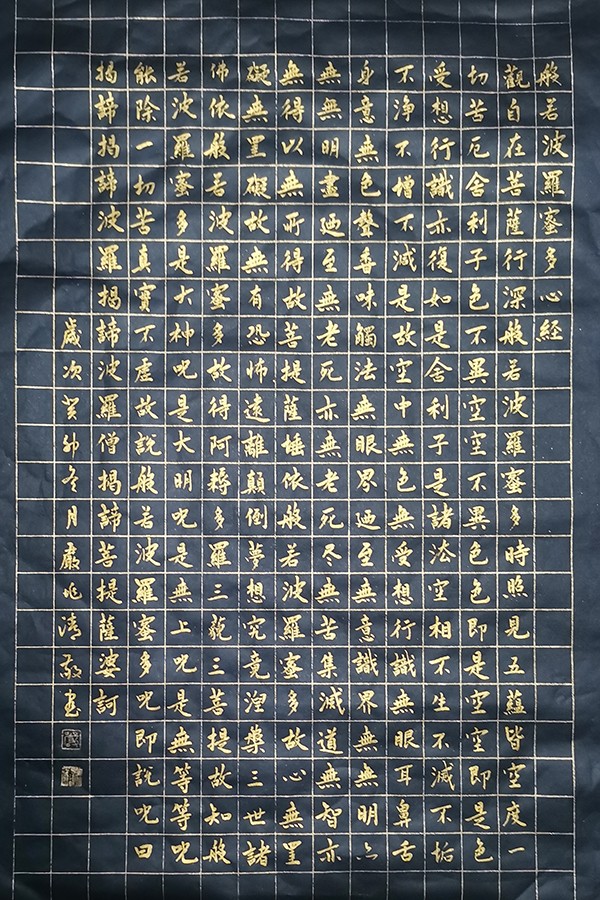 般若波羅蜜多心經
觀自在菩薩行深般若波羅蜜多時照見五蘊皆空度一
切苦厄舍利子色不異空空不異色色即是空空即是色
受想行識亦復如是舍利子是諸法空相不生不滅不垢
不淨不增不減是故空中無色無受想行識無眼耳鼻舌
身意無色聲香味觸法無眼界迺至無意識界無無明亦
無無明盡迺至無老死亦無老死尽無苦集滅道無智亦
無得以無所得故菩提薩埵依般若波羅蜜多故心無罣
礙無罣礙故無有恐怖遠離顛倒夢想究竟涅槃三世諸
佛依般若波羅蜜多故得阿耨多羅三藐三菩提故知般
若波羅蜜多是大神呪是大明呪是無上呪是無等等呪
能除一切苦真實不虛故說般若波羅蜜多呪即說呪曰
揭諦揭諦波羅揭諦波羅僧揭諦菩提薩婆訶
歲次癸卯冬月嚴兆清敬書